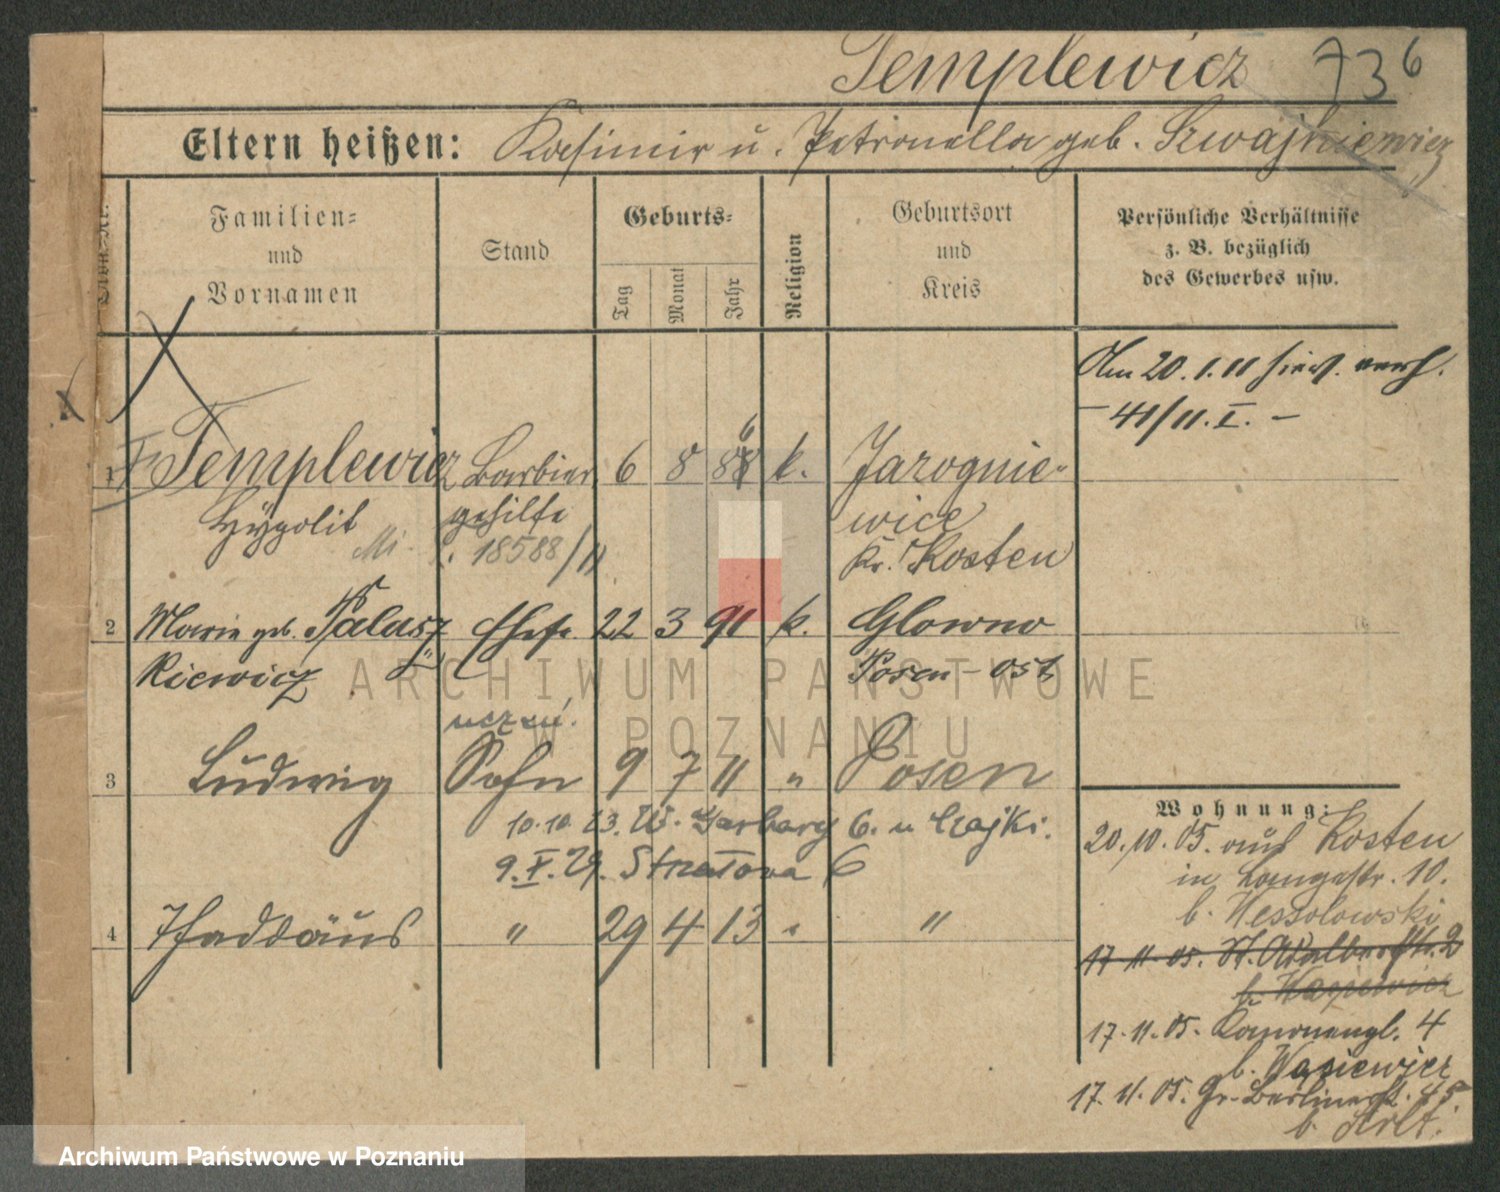 Templewicz 736
Eltern heißen: Kasimir u. Petronella geb. Szwajkiewicz
Familien-
und
Vornamen
Stand
Geburts-
Tag
Monat
Jahr
Religion
Geburtsort
und
Kreis
Persönliche Verhältnisse
z. B. bezüglich
des Gewerbes usw.
Am 20.1.11 hier verh.
- 41/11.I. -
1 Templewicz Barbier 6 8 88 6 k. Jarognie-
Hypolit gehilfe wice
18588/11 Kr. Kosten
2 Marie geb. Palasz Ehefr. 22 3 91 k. Glowno
kiewicz Posen-Ost
uczeń.
3 Ludwig Sohn 9 7 11 " Posen
10.10.23. W. Garbary 6. u Czajki.
9.V.29. Strzałowa 6
4 Thaddäus " 29 4 13 " "
Wohnung:
20.10.05. aus Kosten
in Langestr. 10.
b. Wessolowski
17.11.05. St. Adalbertstr. 2
17.11.05. Kanonenpl. 4
b. Wąsiewicz
17.11.05. Gr. Berlinerst. 45
ARCHIWUM PAŃSTWOWE
W POZNANIU
Archiwum Państwowe w Poznaniu